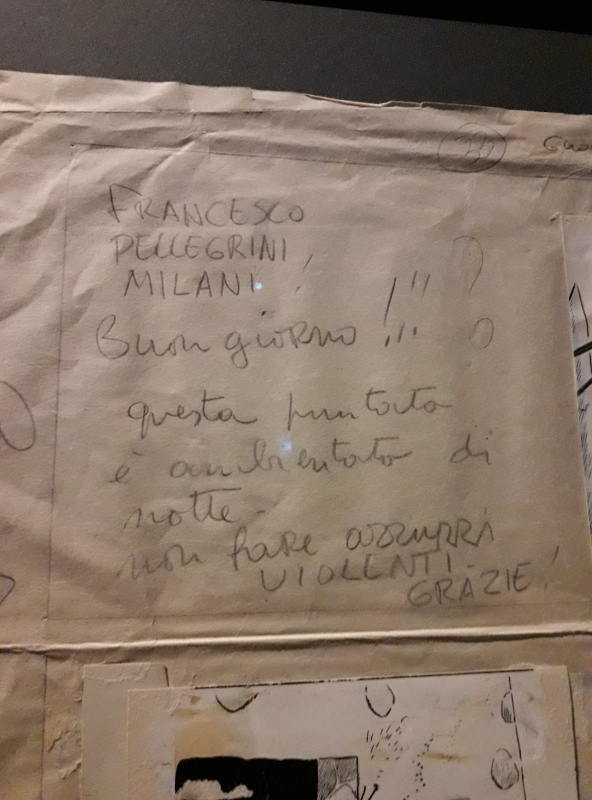 FRANCESCO
PELLEGRINI
MILANI!
Buon giorno !!!!
questa puntata
è ambientata di
notte.
non fare azzurri
VIOLENTI.
GRAZIE!